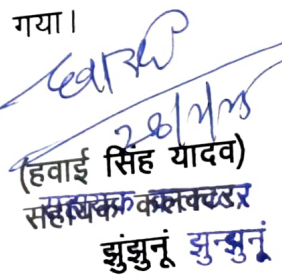 गया।
28/4/25
(हवाई सिंह यादव)
सहायक कलक्टर
झुंझुनूं झुन्झुनूं